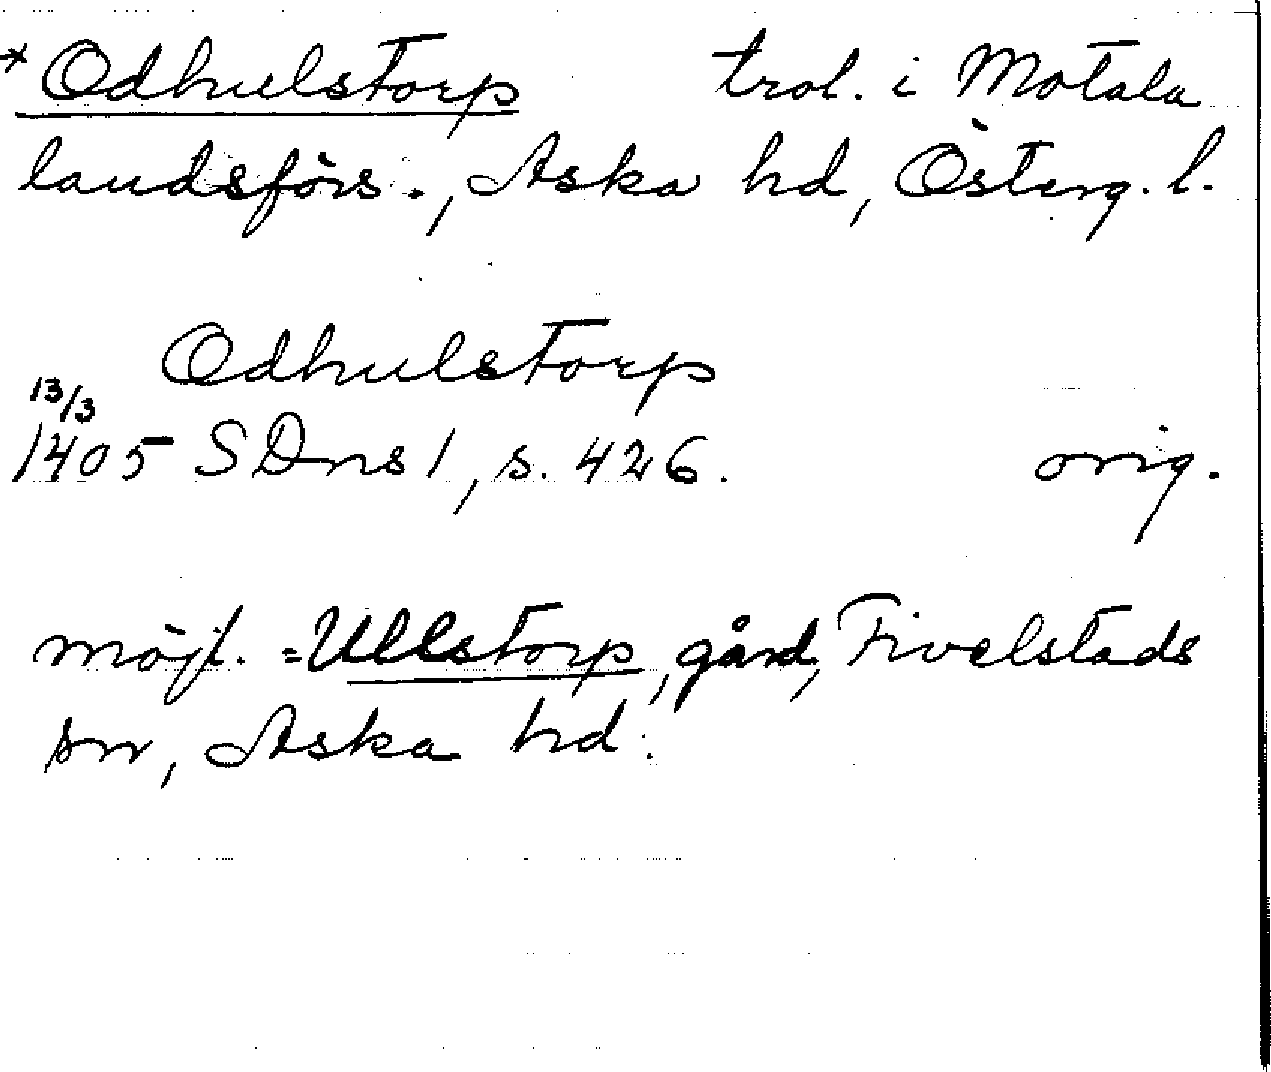 *Odhulstorp trol. i Motala
landsförs., Aska hd, Österg. l.
Odhulstorp
13/3
1405 SDns 1, s. 426. orig.
möjl. = Ullstorp, gård, Fivelstads
sn, Aska hd.